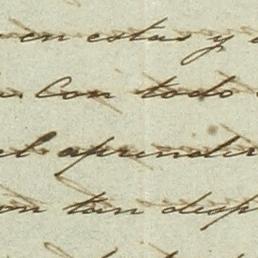 en estas y
Con todo
al aprender
on tan desp